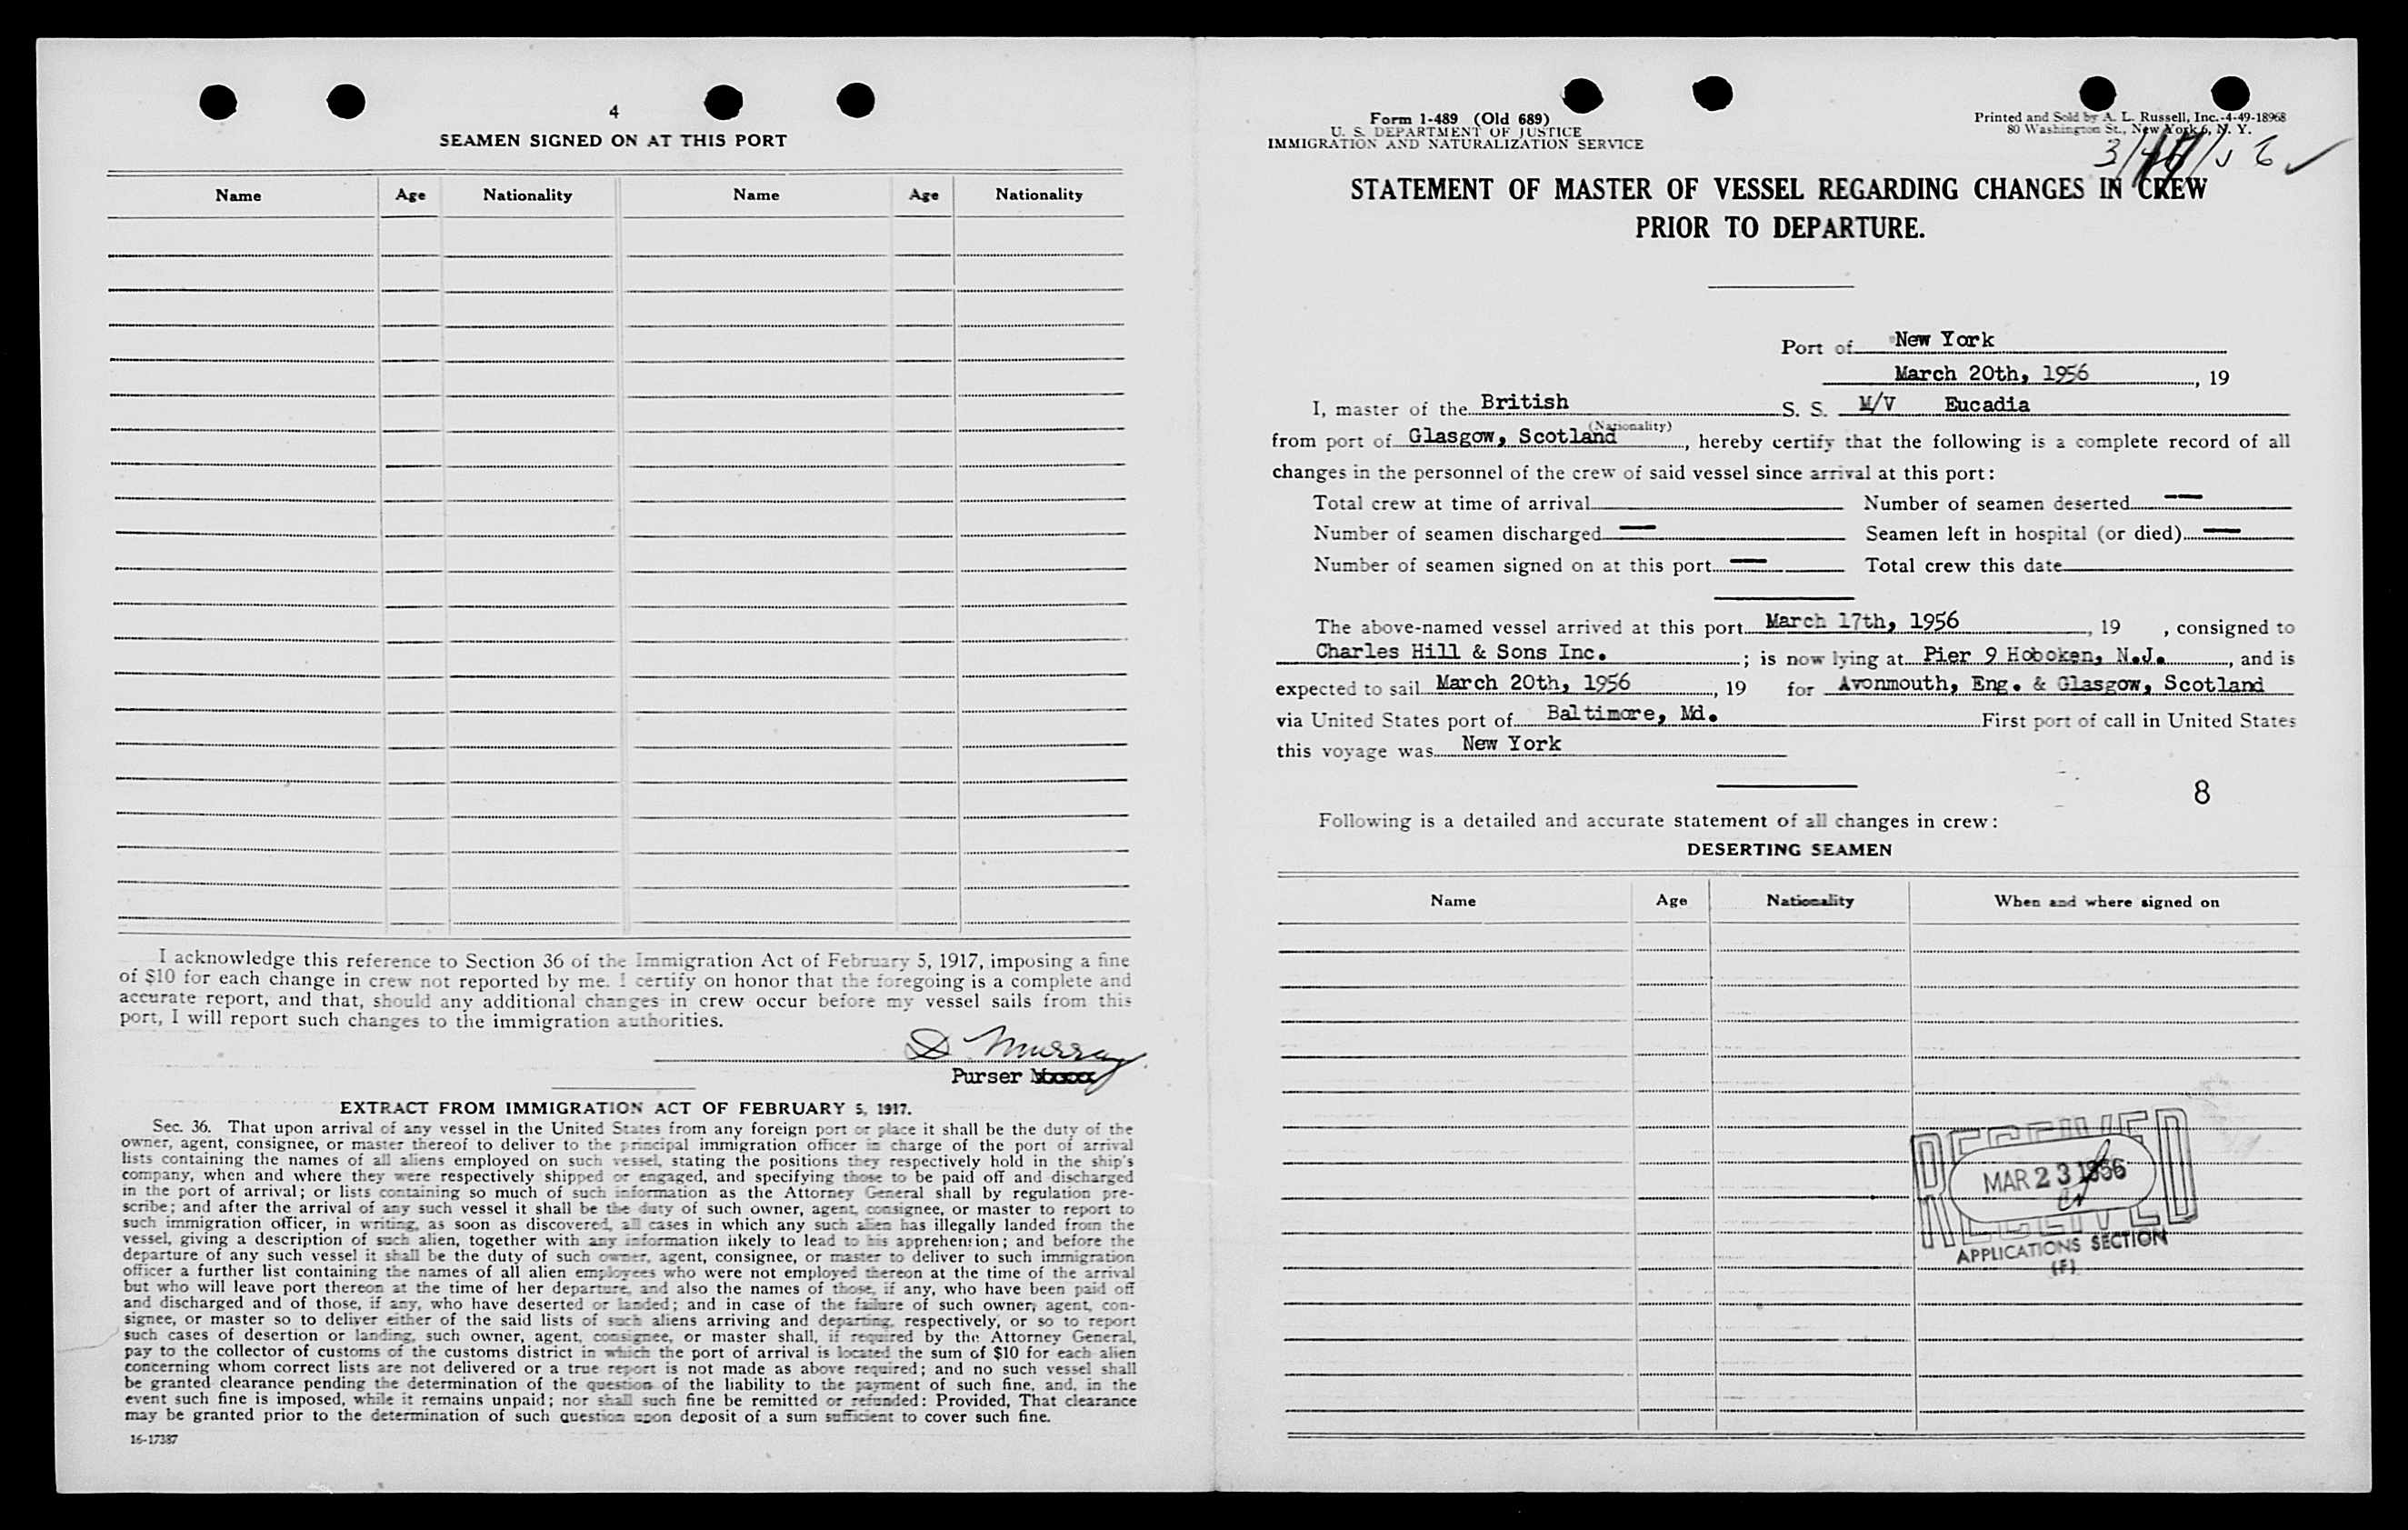 4
SEAMEN SIGNED ON AT THIS PORT
Name Age Nationality Name Age Nationality
I acknowledge this reference to Section 36 of the Immigration Act of February 5, 1917, imposing a fine
of $10 for each change in crew not reported by me. I certify on honor that the foregoing is a complete and
accurate report, and that, should any additional changes in crew occur before my vessel sails from this
port, I will report such changes to the immigration authorities.
D Murray
Purser
EXTRACT FROM IMMIGRATION ACT OF FEBRUARY 5, 1917.
Sec. 36. That upon arrival of any vessel in the United States from any foreign port or place it shall be the duty of the
owner, agent, consignee, or master thereof to deliver to the principal immigration officer in charge of the port of arrival
lists containing the names of all aliens employed on such vessel, stating the positions they respectively hold in the ship's
company, when and where they were respectively shipped or engaged, and specifying those to be paid off and discharged
in the port of arrival; or lists containing so much of such information as the Attorney General shall by regulation pre-
scribe; and after the arrival of any such vessel it shall be the duty of such owner, agent, consignee, or master to report to
such immigration officer, in writing, as soon as discovered, all cases in which any such alien has illegally landed from the
vessel, giving a description of such alien, together with any information likely to lead to his apprehension; and before the
departure of any such vessel it shall be the duty of such owner, agent, consignee, or master to deliver to such immigration
officer a further list containing the names of all alien employees who were not employed thereon at the time of the arrival
but who will leave port thereon at the time of her departure, and also the names of those, if any, who have been paid off
and discharged and of those, if any, who have deserted or landed; and in case of the failure of such owner, agent, con-
signee, or master so to deliver either of the said lists of such aliens arriving and departing, respectively, or so to report
such cases of desertion or landing, such owner, agent, consignee, or master shall, if required by the Attorney General,
pay to the collector of customs of the customs district in which the port of arrival is located the sum of $10 for each alien
concerning whom correct lists are not delivered or a true report is not made as above required; and no such vessel shall
be granted clearance pending the determination of the question of the liability to the payment of such fine, and, in the
event such fine is imposed, while it remains unpaid; nor shall such fine be remitted or refunded: Provided, That clearance
may be granted prior to the determination of such question upon deposit of a sum sufficient to cover such fine.
16-17387
Form 1-489 (Old 689)
U. S. DEPARTMENT OF JUSTICE
IMMIGRATION AND NATURALIZATION SERVICE
Printed and Sold by A. L. Russell, Inc.-4-49-18968
80 Washington St., New York 6, N. Y.
STATEMENT OF MASTER OF VESSEL REGARDING CHANGES IN CREW
PRIOR TO DEPARTURE.
Port of New York
March 20th, 1956, 19
I, master of the British S. S. M/V Eucadia
(Nationality)
from port of Glasgow, Scotland, hereby certify that the following is a complete record of all
changes in the personnel of the crew of said vessel since arrival at this port:
Total crew at time of arrival Number of seamen deserted —
Number of seamen discharged — Seamen left in hospital (or died) —
Number of seamen signed on at this port — Total crew this date
The above-named vessel arrived at this port March 17th, 1956, 19 , consigned to
Charles Hill & Sons Inc. ; is now lying at Pier 9 Hoboken, N.J., and is
expected to sail March 20th, 1956, 19 for Avonmouth, Eng. & Glasgow, Scotland
via United States port of Baltimore, Md. First port of call in United States
this voyage was New York
8
Following is a detailed and accurate statement of all changes in crew:
DESERTING SEAMEN
Name Age Nationality When and where signed on
RECEIVED
MAR 23 1956
RECEIVED
APPLICATIONS SECTION
(F)